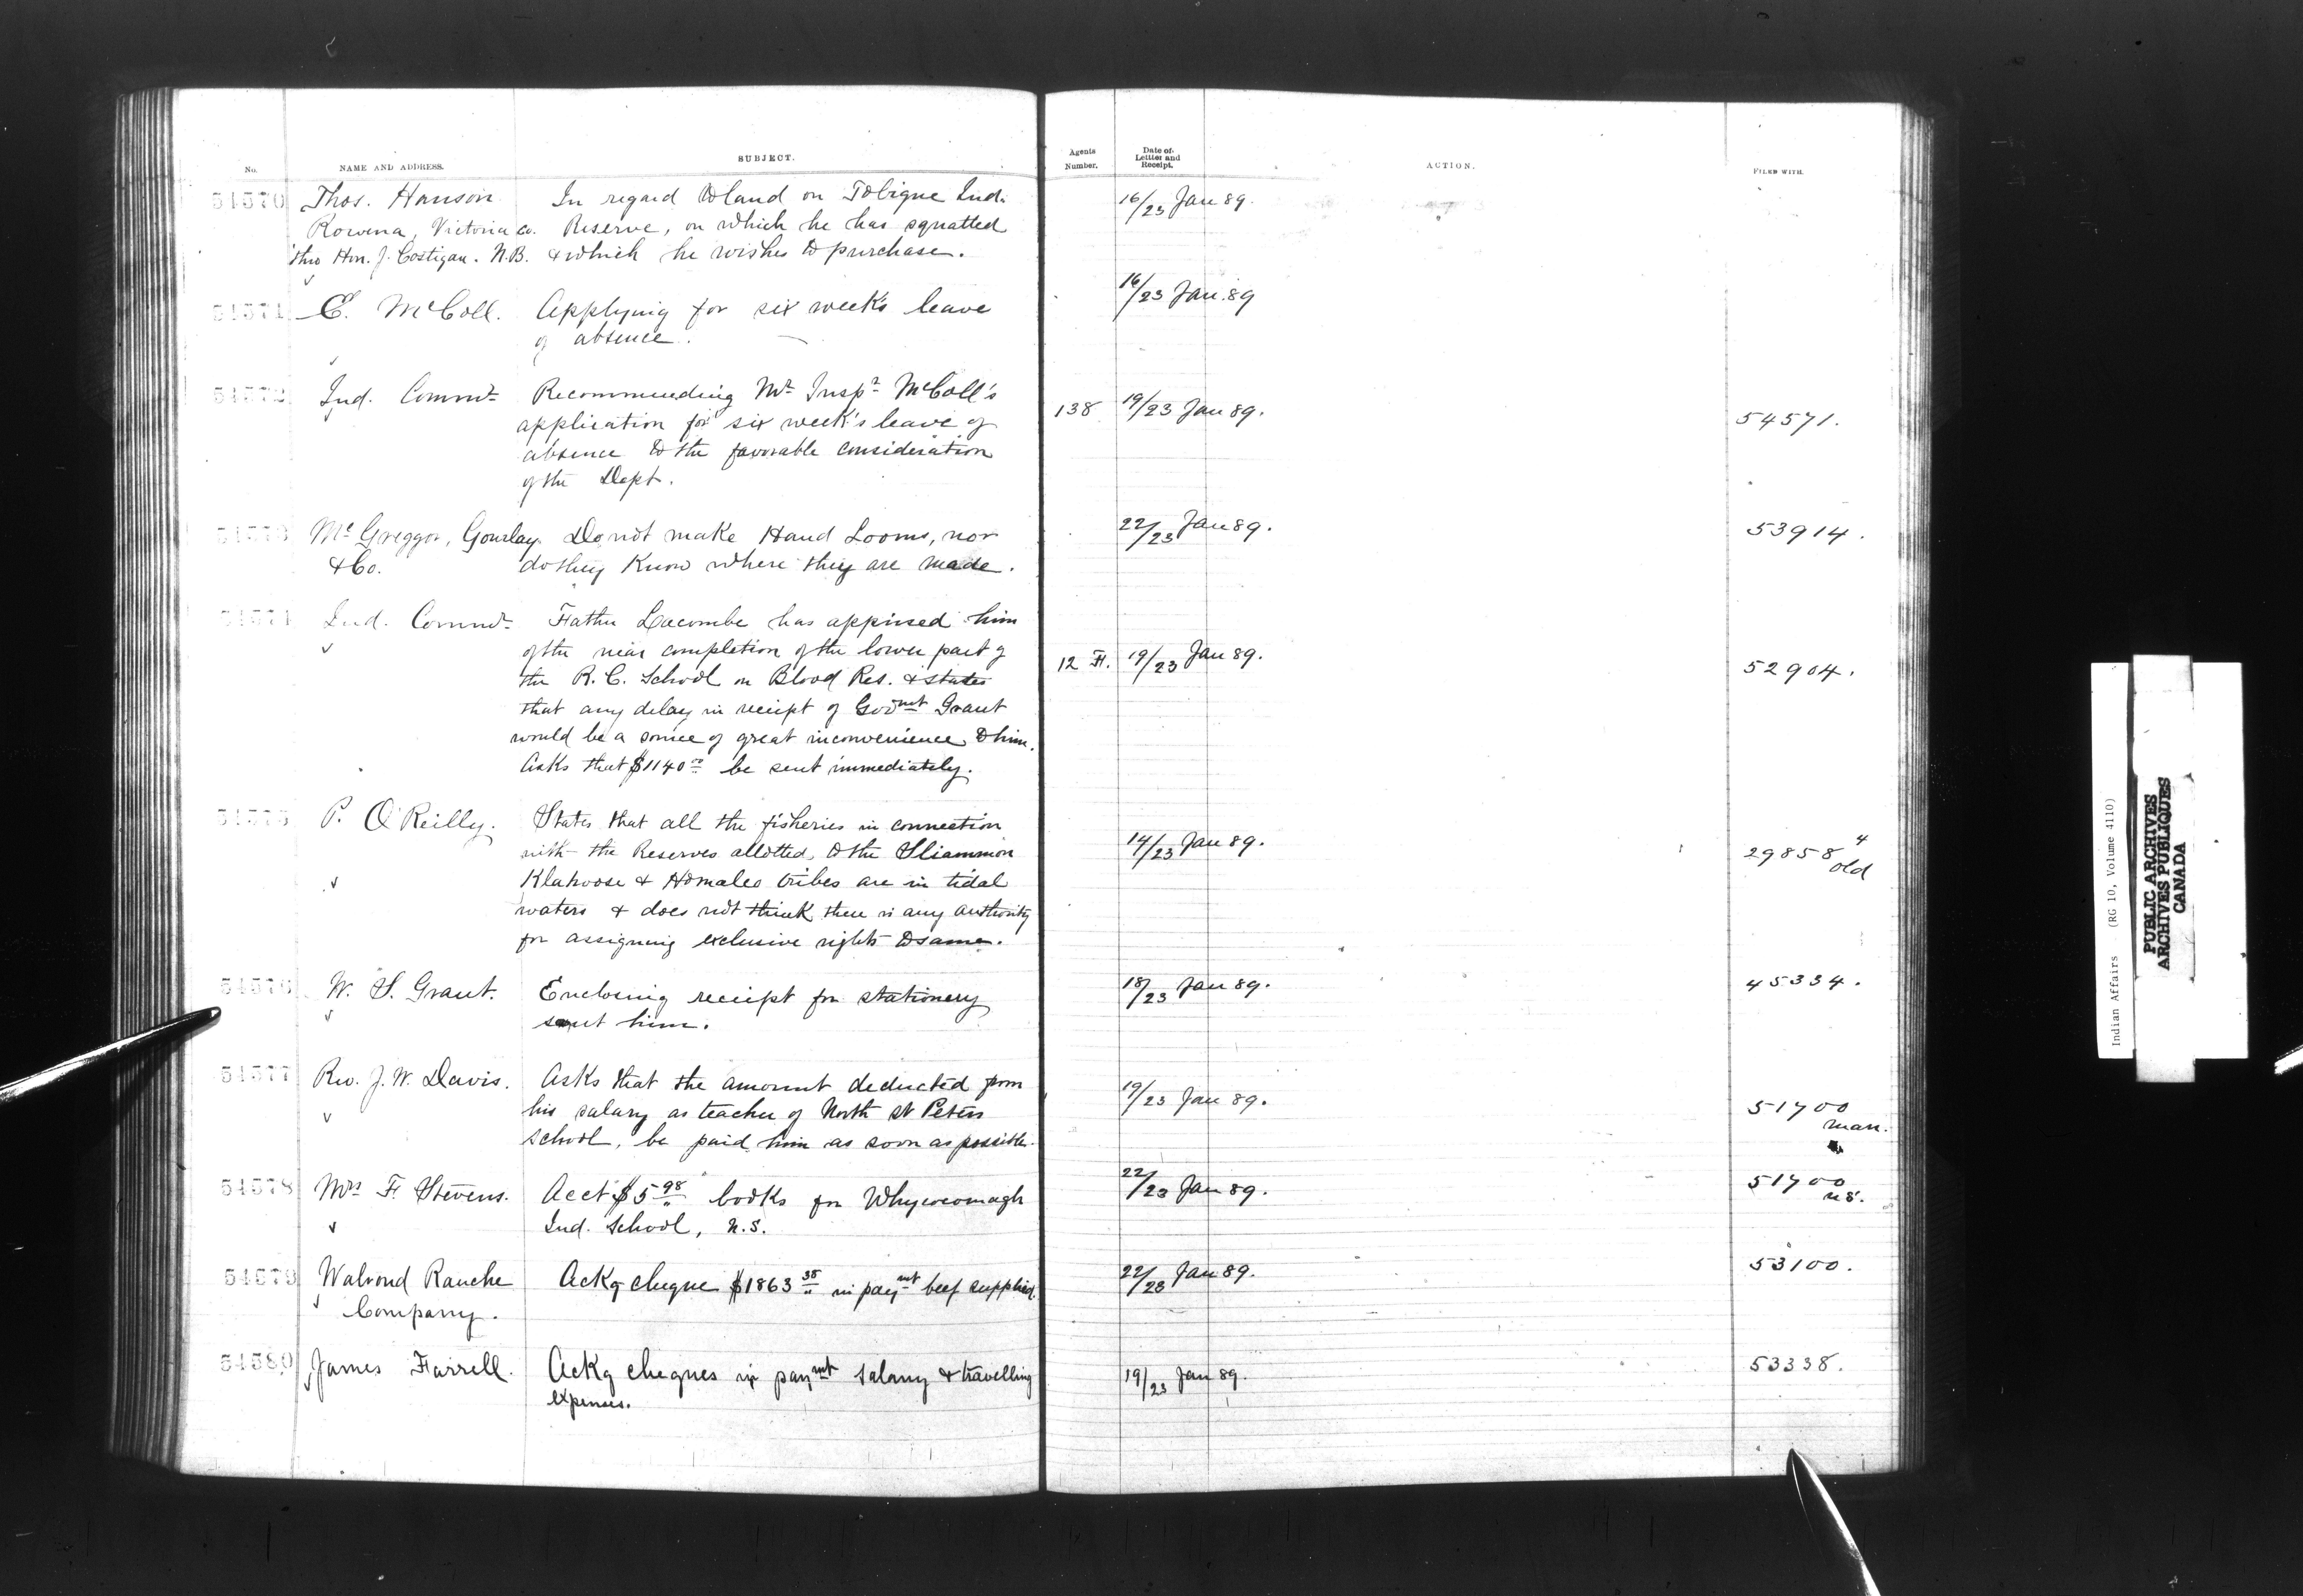 No.
NAME AND ADDRESS.
SUBJECT.
Agents Number.
Date of Letter and Receipt.
ACTION.
FILED WITH.
54570 Thos. Hanson In regard to land on Tobique Ind. 16/23 Jan 89.
Rowena, Victoria Co. Reserve, on which he has squatted
thro Hon. J. Costigan. N.B. & which he wishes to purchase.
54571 E. McColl. Applying for six weeks leave 16/23 Jan. 89
of absence.
54572 Ind. Commr Recommending Mr Inspr McColl's 138 19/23 Jan 89. 54571.
application for six week's leave of
absence to the favorable consideration
of the Dept.
54573 McGreggor, Gourlay. Do not make Hand Looms, nor 22/23 Jan 89. 53914.
& Co. do they know where they are made.
54574 Ind. Commr Father Lacombe has apprised him
of the near completion of the lower part of 12 H. 19/23 Jan 89. 52904.
the R. C. School on Blood Res. & states
that any delay in receipt of Govmnt Grant
would be a source of great inconvenience to him.
Asks that $1140.00 be sent immediately.
54575 P. O'Reilly. States that all the fisheries in connection
with the Reserves allotted, to the Sliammon 14/23 Jan 89. 29858 4 old
Klahoose & Homalco tribes are in tidal
waters & does not think there is any authority
for assigning exclusive rights to same.
54576 W. S. Grant. Enclosing receipt for stationery 18/23 Jan 89. 45334.
sent him.
54577 Rev. J. W. Davis. Asks that the amount deducted from 19/23 Jan 89.
his salary as teacher of North St Peters 51700 man.
School, be paid him as soon as possible.
54578 Mrs F. Stevens. Acct $5.98 books for Whycocomagh 22/23 Jan 89. 51700 NS.
Ind. School, N.S.
54579 Walrond Ranche Ackg cheque $1863.38 in paymnt beef supplied. 22/23 Jan 89. 53100.
Company.
54580 James Farrell. Ackg cheques in paymnt salary & travelling 19/23 Jan 89. 53338.
expenses.
Indian Affairs (RG 10, Volume 4110)
PUBLIC ARCHIVES
ARCHIVES PUBLIQUES
CANADA